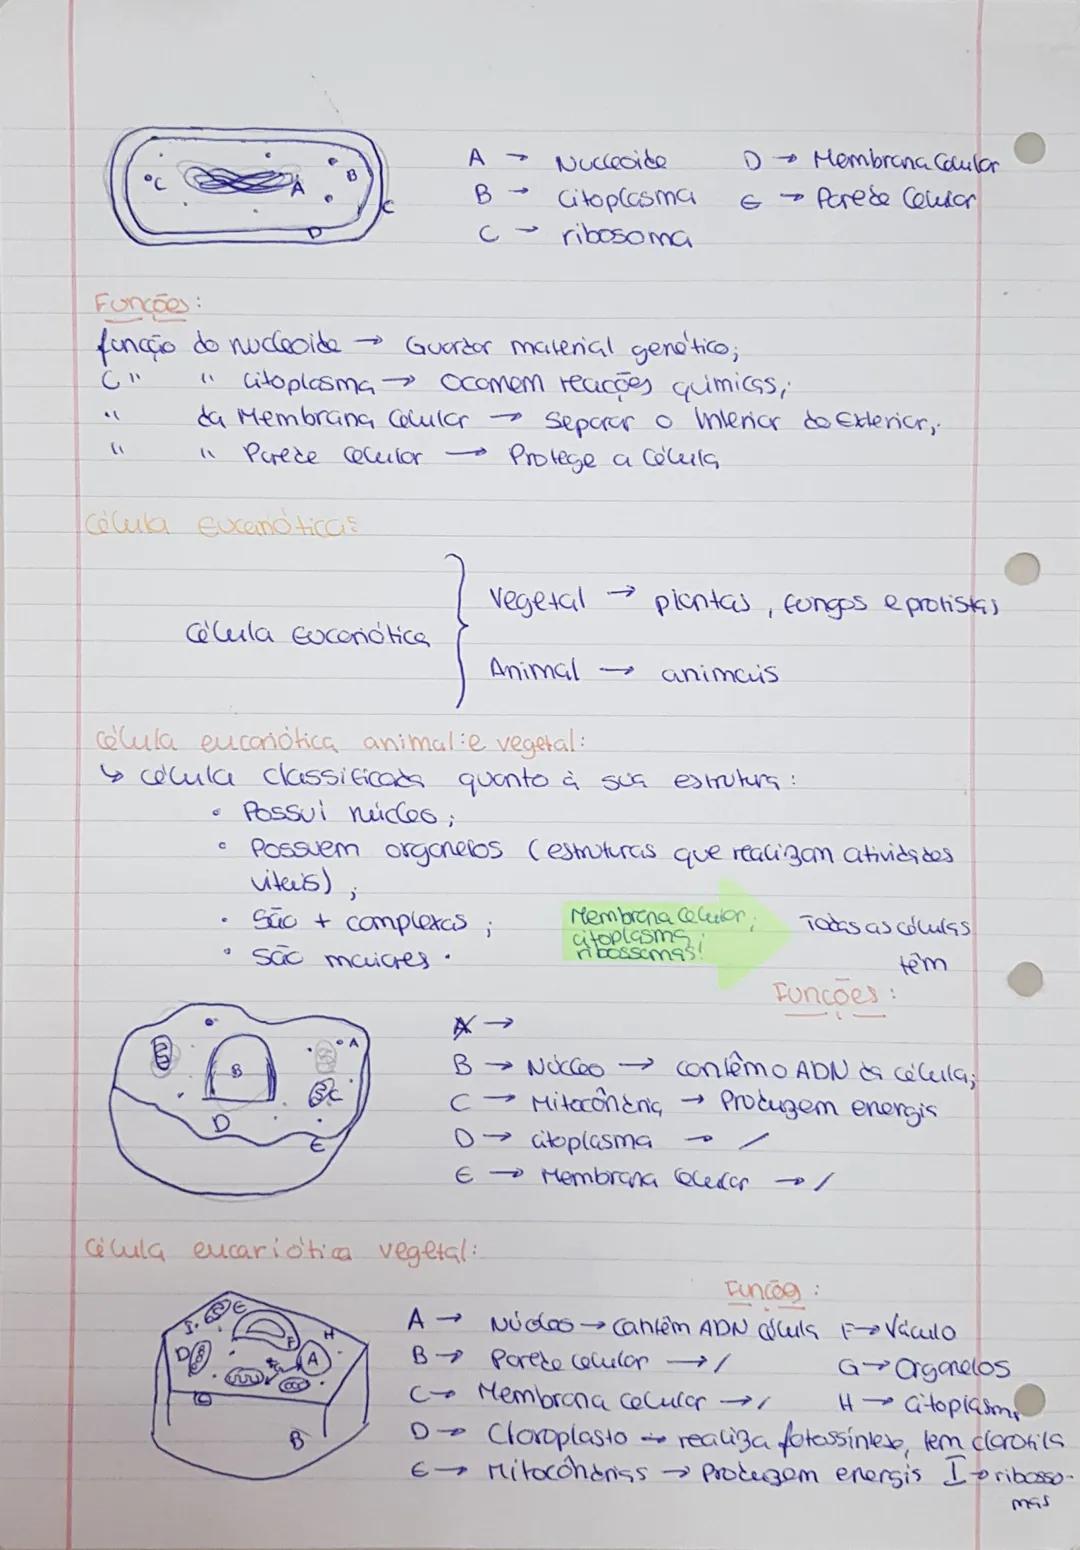 A → Nucleoide D → Membrana Celular
B → Citoplasma E → Parede Celular
C → ribosoma
C A B C D
Funções:
função do nucleoide → Guardar material genético;
C " " Citoplasma → Ocorrem reações químicas;
" da Membrana Celular → Separar o Interior do Exterior;
" " Parede celular → Protege a Célula
Célula Eucariótica:
Célula Eucariótica
Vegetal → plantas, fungos e protistas
Animal → animais
Célula eucariótica animal:e vegetal:
↳ célula classificada quanto à sua estrutura:
• Possui núcleo;
• Possuem organelos (estruturas que realizam atividades
vitais);
• São + complexas;
• São maiores.
Membrana Celular;
citoplasma;
ribossomas!
Todas as células
têm
Funções:
A →
B → Núcleo → contêm o ADN da célula;
C → Mitocôndria → Produzem energia
D → citoplasma → /
E → Membrana Celular → /
A B C D E
Célula eucariótica vegetal:
Funções:
A → Núcleo → Contêm ADN célula F → Vácuolo
B → Parede celular → / G → Organelos
C → Membrana celular → / H → Citoplasma
D → Cloroplasto → realiza fotossíntese, tem clorofila
E → Mitocôndrias → Produzem energia I → ribosso-
mas
I E H F D A G C B